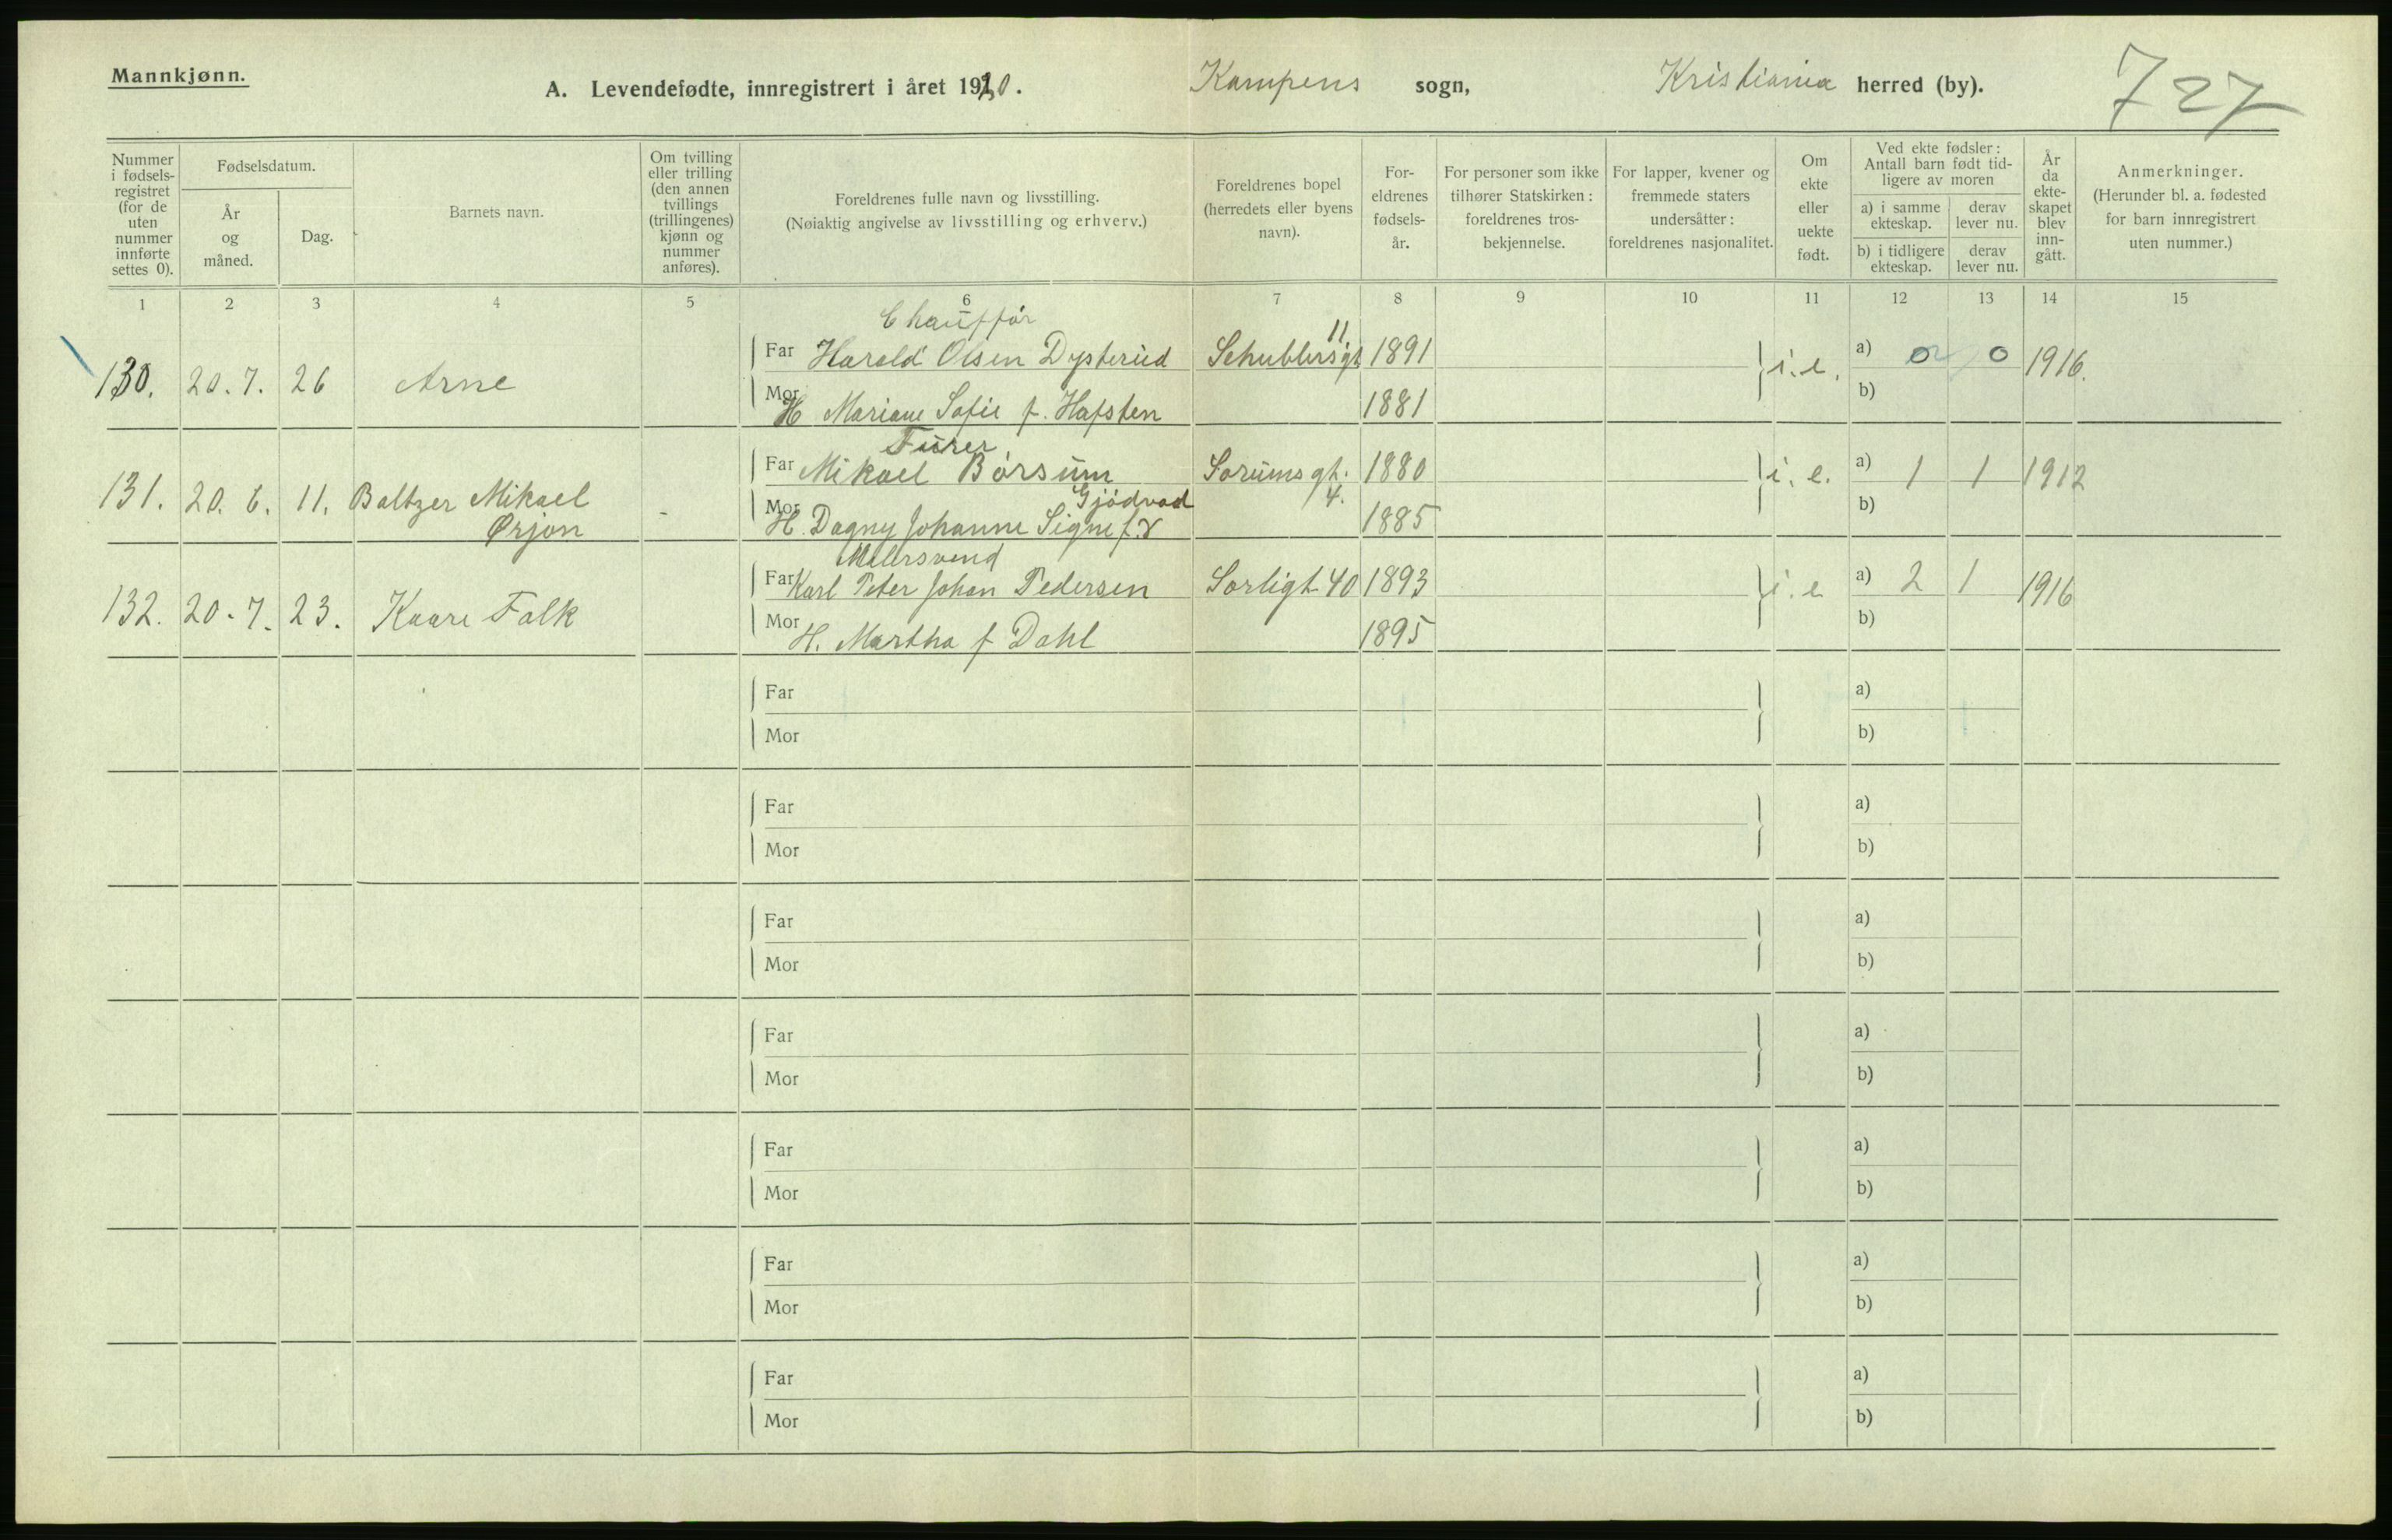 Mannkjønn.
A. Levendefødte, innregistrert i året 1920.
Kampens sogn,
Kristiania herred (by).
727
Nummer i fødsels-registret (for de uten nummer innførte settes 0).
Fødselsdatum.
År og måned.
Dag.
Barnets navn.
Om tvilling eller trilling (den annen tvillings (trillingenes) kjønn og nummer anføres).
Foreldrenes fulle navn og livsstilling.
(Nøiaktig angivelse av livsstilling og erhverv.)
Foreldrenes bopel (herredets eller byens navn).
For-eldrenes fødsels-år.
For personer som ikke tilhører Statskirken: foreldrenes tros-bekjennelse.
For lapper, kvener og fremmede staters undersåtter: foreldrenes nasjonalitet.
Om ekte eller uekte født.
Ved ekte fødsler: Antall barn født tid-ligere av moren
a) i samme ekteskap.
derav lever nu.
b) i tidligere ekteskap.
derav lever nu.
År da ekte-skapet blev inn-gått.
Anmerkninger.
(Herunder bl. a. fødested for barn innregistrert uten nummer.)
1 2 3 4 5 6 7 8 9 10 11 12 13 14 15
Chauffør
130. 20.7. 26 Arne Far Harald Olsen Dysterud Schublersgt 11 1891 i.e. a) 0 0 1916.
Mor H Mariane Sofie f. Hafsten 1881 b)
Furer
131. 20.6. 11. Baltzer Mikael Far Mikael Børsum Sorumsgt. 4. 1880 i.e. a) 1 1 1912
Gjødvad
Ørjon - Mor H. Dagny Johanne Signe f. 1885 b)
Malersvend
132. 20-7. 23. Kaare Falk Far Karl Peter Johan Pedersen Sorligt 40 1893 i.e a) 2 1 1916
Mor H. Martha f Dahl 1895 b)
Far a)
Mor b)
Far a)
Mor b)
Far a)
Mor b)
Far a)
Mor b)
Far a)
Mor b)
Far a)
Mor b)
Far a)
Mor b)